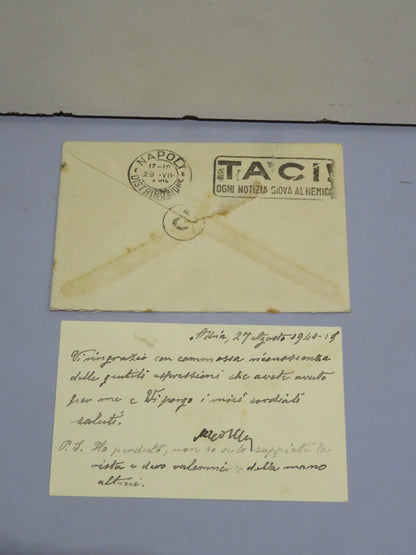 NAPOLI
17-18
29·VII
DISTRIBUZIONE
TACI!
OGNI NOTIZIA GIOVA AL NEMICO
27 Agosto 1941-
Vi ringrazio con commossa riconoscenza
delle gentili espressioni che avete avuto
per me e Vi porgo i miei cordiali
saluti.
P.S. Ho perduto, non so se lo sappiate la
vista e devo valermi della mano
altrui.